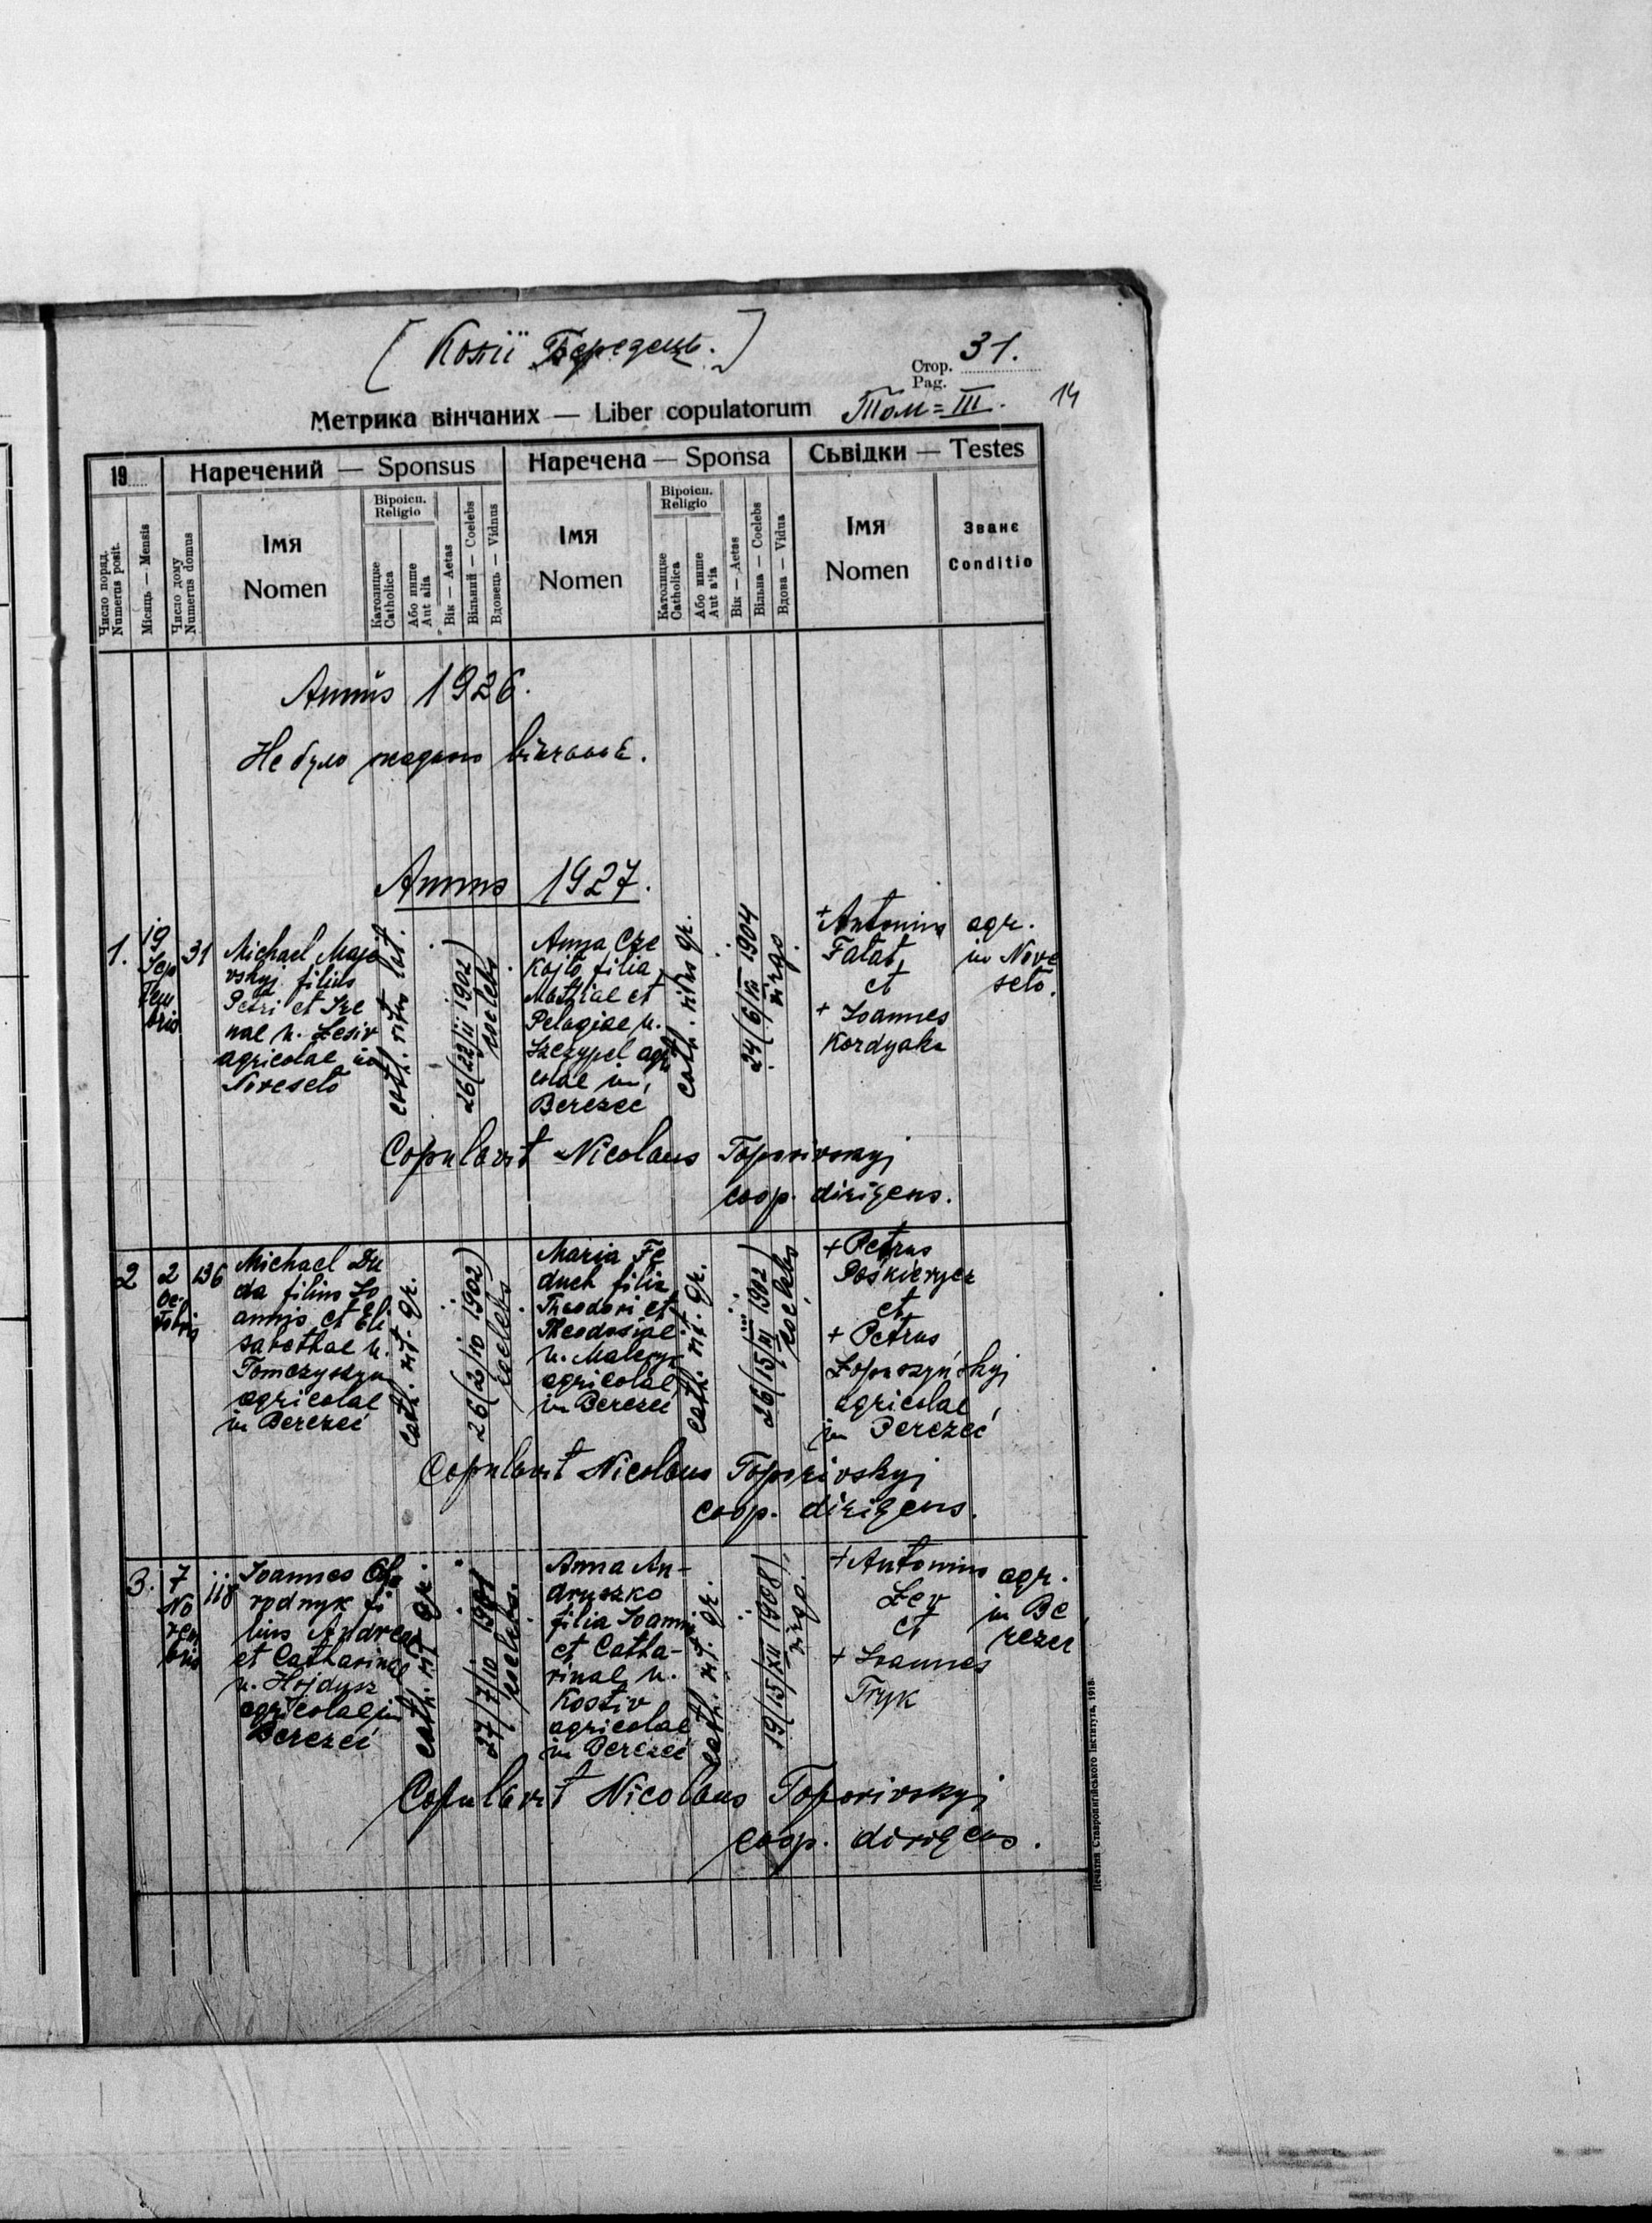 [ Копії Бередець. ]
Стор. 31.
Pag.
14
Метрика вінчаних — Liber copulatorum Том = III.
19 Наречений — Sponsus Наречена — Sponsa Сьвідки — Testes
Число поряд. Numerus posit.
Місяць — Mensis
Число дому Numerus domus
Імя
Nomen
Віроісп. Religio
Католицке Catholica
Або инше Aut alia
Вік — Aetas
Вільний — Coelebs
Вдовець — Viduus
Імя
Nomen
Віроісп. Religio
Католицке Catholica
Або инше Aut alia
Вік — Aetas
Вільна — Coelebs
Вдова — Vidua
Імя
Nomen
Званє
Conditio
Annus 1926.
Не було жадного вінчаня.
Annus 1927.
1.
19
Sep
tem
bris
31
Michael Maje
vskyj filius
Petri et Ire
nae n. Lesiv
agricolae in
Noveselo
cath. ritus lat.
26 (22/ii 1902)
coelebs
Anna Cze
kajlo filia
Mathiae et
Pelagiae n.
Szczypel agri
colae in
Berezeć
cath. ritus gr.
24 (6/III 1904
virgo.
+ Antonius
Falat
et
+ Ioannes
Kordyaka
agr.
in Nove
selo.
Copulavit Nicolaus Toporivskyj
coop. dirigens.
2
2
Oc
tobris
136
Michael Du
da filius Io
annis et Eli
sabethae n.
Tomczyszyn
agricolae
in Berezeć
cath. rit. gr.
26 (2/10 1902)
coelebs
Maria Fe
duch filia
Theodori et
Theodosiae
n.
agricolae
in Berezeć
cath. rit. gr.
26 (15/III 1902)
coelebs
+ Petrus
Paśkievycz
et
+ Petrus
Łopuszyńskyj
agricolae
in Berezeć
Copulavit Nicolaus Toporivskyj
coop. dirigens.
3.
7
No
vem
bris
118
Ioannes Oho
rodnyk fi
lius Andreae
et Catharinae
n. Hojdysz
agricolae in
Berezeć
cath. rit. gr.
27/7/10 1901
coelebs.
Anna An-
druszko
filia Ioannis
et Catha-
rinae n.
Kostiv
agricolae
in Berezeć
cath. rit. gr.
19 (15/XII 1908)
virgo.
+ Antonius
Lev
et
+ Ioannes
Tryk
agr.
in Be
rezeć
Copulavit Nicolaus Toporivskyj
coop. dirigens.
Печатня Ставропигійського Інститута, 1918.